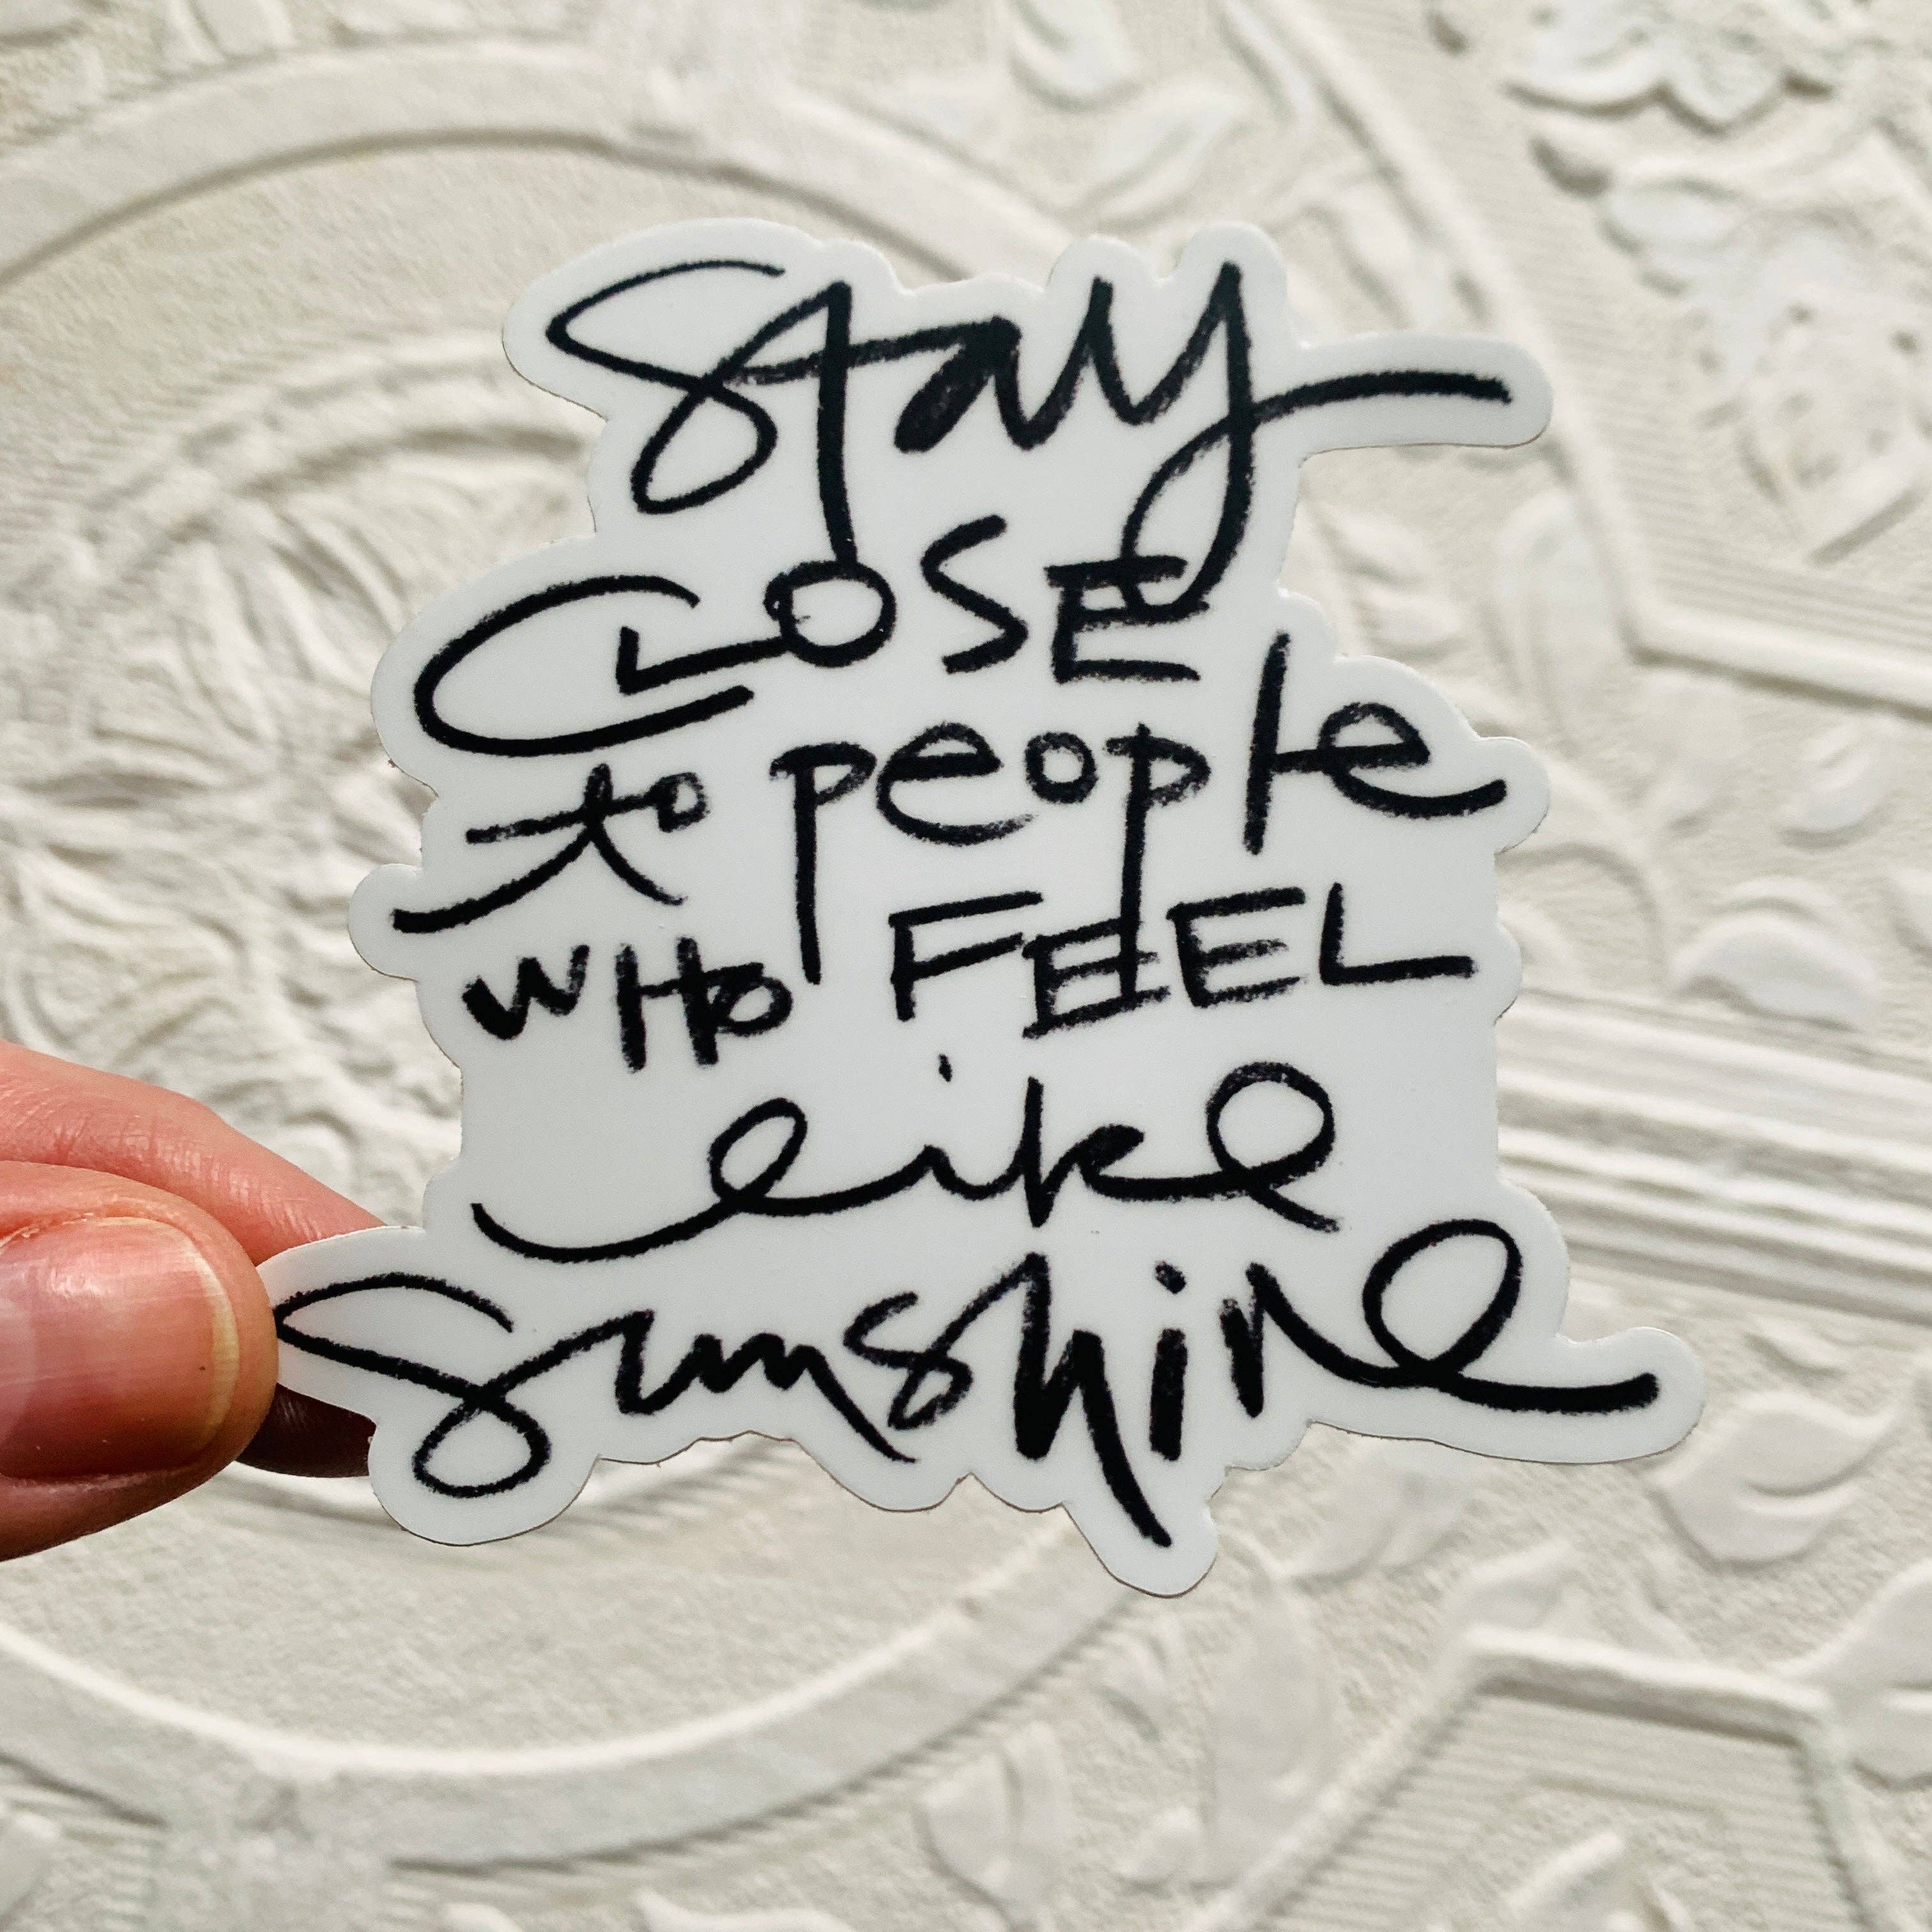 Stay
CLOSE
to people
WHO FEEL
like
Sunshine